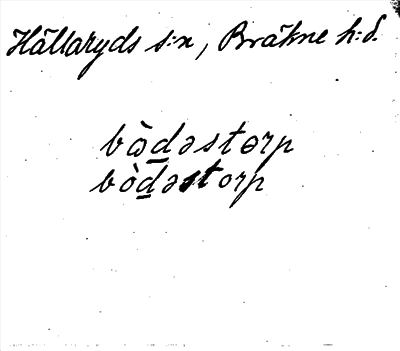 Hällaryds s:n, Bräkne h:d.
bòd̲əstorp
bòd̲əstorp